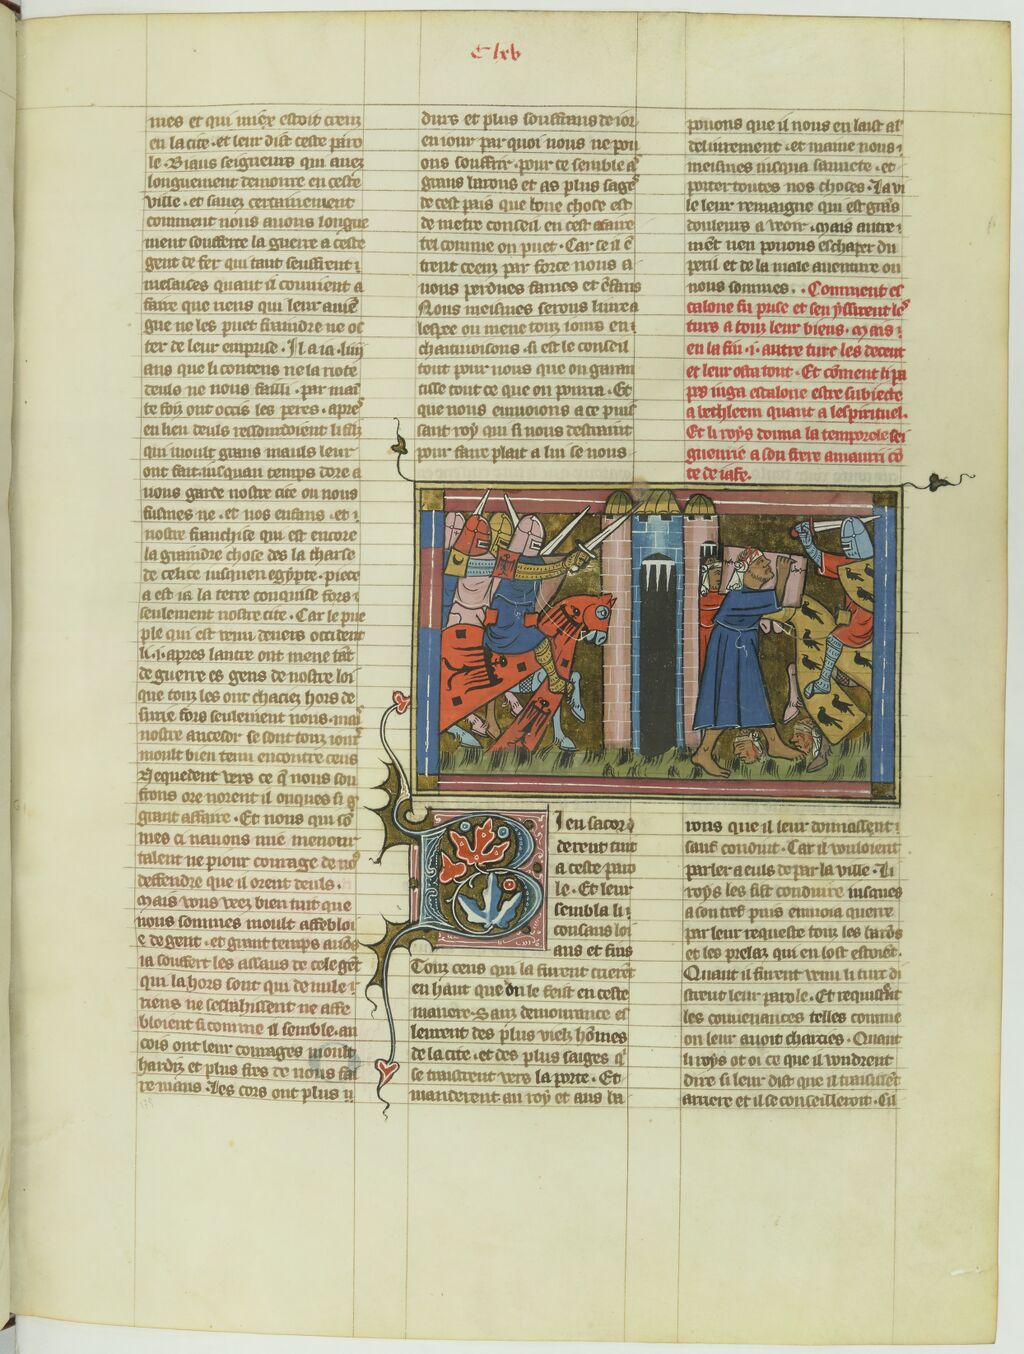 C lxv
mes et qui miex estoit creuz
en la cite · et leur dist ceste paro
le · Biaus seigneurs qui auez
longuement demoure en ceste
ville · et sauez certainement
comment nous auons longue
ment souffere la guerre a ceste
gent de fer qui tant seuffrent
mesaises quant il conuient a
faire que riens qui leur auie
gne ne les puet fraindre ne os
ter de leur emprise · Il a ia · iiii
ans que li contens ne la note
deuls ne nous failli · par mai
te foiz ont occis les peres · apres
en lieu deuls ressourdoient li filz
qui moult grans mauls leur
ont fait iusquau temps dore a
uons garde nostre cite ou nous
fusmes ne · et nos enfans · et
nostre franchise qui est encore
la graindre chose des la tharse
de celice iusquen egypte · piece
a est ia la terre conquise fors
seulement nostre cite · Car le peu
ple qui est venu deuers occident
li · i · apres lautre ont mene tant
de guerre es gens de nostre loi
que touz les ont chaciez hors de
surie fors seulement nous · mais
nostre ancesor se sont touz iours
moult bien tenu encontre ceus
Quequedent vers ce que nous sou
frons ore norent il onques si
grant affaire · Et nous qui so
mes ci nauons mie menour
talent ne piour courage de nous
deffendre que il orent deuls ·
Mais vous veez bien tuit que
nous sommes moult affebloi
e de gent · et grant temps auons
ia souffert les assaus de cele gent
qui la hors sont qui de nule
riens ne sesbahissent ne affe
bloient si comme il semble · an
cois ont leur courages moult
hardiz et plus fres de nous fai
re maus · Les cors ont plus
durs et plus souffrans de ior
en iour par quoi nous ne pou
ons souffrir · pour ce semble as
grans barons et as plus sages
de cest pais que bone chose est
de metre conseil en cest afaire
tel comme on puet · Car se il en
trent ceenz par force nous a
uons perdues fames et enfans
Nous meismes serons liure a
lespee ou mene touz iours en
chaitiuoisons · si est le conseil
tout pour nous que on garan
tisse tout ce que on pourra · Et
que nous enuoions a ce puis
sant roy qui si nous destraint
pour faire plait a lui se nous
pouons que il nous en laist al
deliurement · et maine nous
meismes iusqua sauuete · et
porter toutes nos choses · La vi
le leur remaigne qui est grans
douleurs a veoir · Mais autre
ment nen pouons eschaper du
peril et de la male auenture ou
nous sommes · Comment es
calone fu prise et sen yssirent les
turs a touz leur biens · Mais
en la fin · i · autre turc les deceut
et leur osta tout · Et comment li pa
pes iuga escalone estre subiecte
a bethleem quant a lespirituel ·
Et li roys donna la temporele sei
gneurie a son frere amaurri con
te de iafe ·
B
Ien sacor
derent tuit
a ceste paro
le · Et leur
sembla li
consaus loi
aus et fins
Touz ceus qui la furent crierent
en haut que on le feist en ceste
maniere · Sanz demourance es
leurent des plus vielz hommes
de la cite · et des plus saiges qui
se traisirent vers la porte · Et
manderent au roy et aus ba
rons que il leur donnassent
sauf conduit · Car il vouloient
parler a euls de par la ville · Li
roys les fist conduire iusques
a son tref puis enuoia querre
par leur requeste touz les barons
et les prelaz qui en lost estoient ·
Quant il furent venu li turc di
strent leur parole · Et requistrent
les conuenances telles comme
on leur auoit charcies · Quant
li roys ot oi ce que il voudrent
dire si leur dist que il traisissent
arriere et il se conseilleroit · Cil